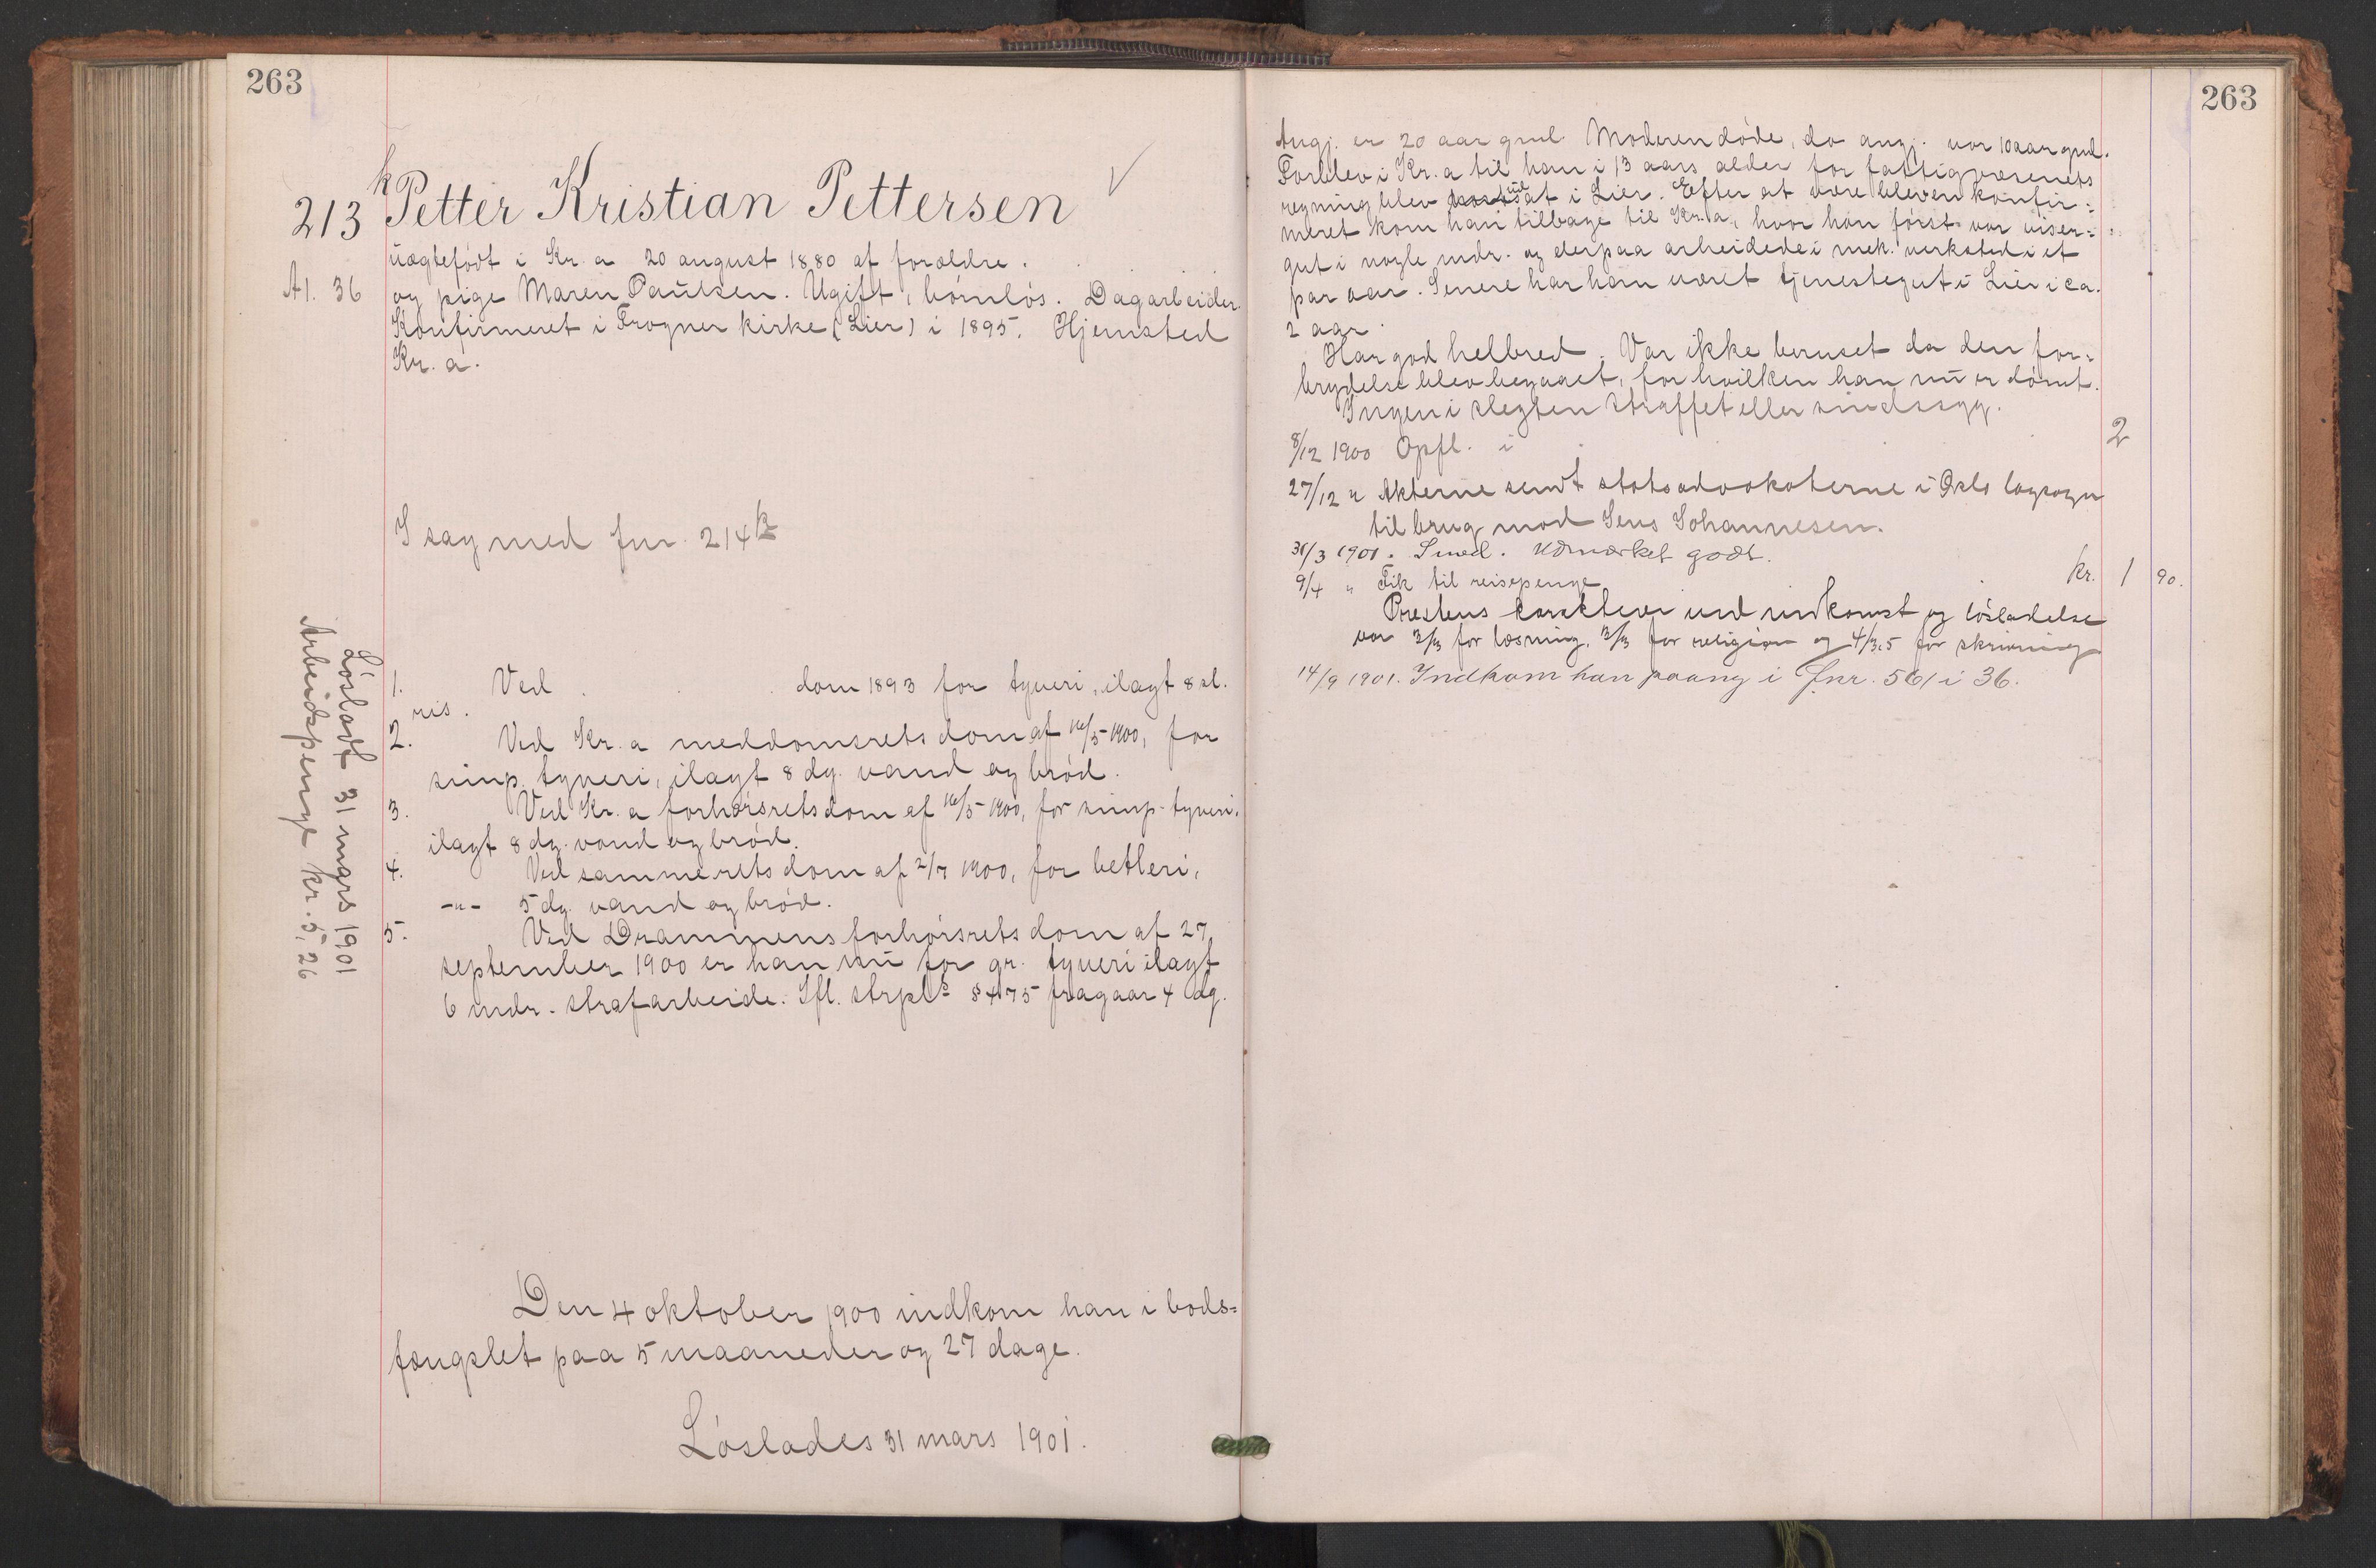 263
213 k Petter Kristian Pettersen ✓
uægtefödt i Kr.a 20 august 1880 af forældre.
At. 36
og pige Maren Paulsen. Ugift, börnlös. Dagarbeider.
Konfirmeret i Frogner kirke (Lier) i 1895. Hjemsted
Kr.a.
I sag med fnr. 214 k
1. Ved dom 1893 for tyveri, ilagt 8 sl.
ris.
2. Ved Kr.a meddomsrets dom af 16/5 1900, for
simp. tyveri, ilagt 8 dg. vand og bröd.
3. Ved Kr.a forhörsretsdom af 16/5 1900, for simp. tyveri,
ilagt 8 dg. vand og bröd.
4. Ved samme rets dom af 2/7 1900, for betleri,
-"- 5 dg. vand og bröd.
5. Ved Drammens forhörsrets dom af 27
september 1900 er han nu for gr. tyveri ilagt
6 mdr. strafarbeide. Ifl. strpls § 475 fragaar 4 dg.
Lösladt 31 mars 1901
Arbeidspenge kr. 5,26
Den 4 oktober 1900 indkom han i bods=
fængslet paa 5 maaneder og 27 dage.
Löslades 31 mars 1901.
263
Angj. er 20 aar gml. Moderen döde, da angj. var 10 aar gml.
Forblev i Kr.a til han i 13 aars alder for fattigvæsenets
regning blev udsat i Lier. Efter at være bleven konfir=
meret kom han tilbage til Kr.a, hvor han först var viser=
gut i nogle mdr. og derpaa arbeidede i mek. verksted i et
par aar. Senere har han været tjenestegut i Lier i ca.
2 aar.
Har god helbred. Var ikke beruset da den for=
brydelse blev begaaet, for hvilken han nu er dömt.
Ingen i slegten straffet eller sindssyg.
8/12 1900 Opfl. i 2
27/12 " Akterne sendt statsadvokaterne i Oslo lagsogn
til brug mod Jens Johannesen.
31/3 1901. Smed. Udmærket godt.
9/4 " Fik til reisepenge kr. 1 90.
Prestens karakterer ved indkomst og lösladelse
var 3/3 for læsning, 3/3 for religion og 4/3,5 for skrivning
14/9 1901. Indkom han paany i Fnr. 561 i 36.